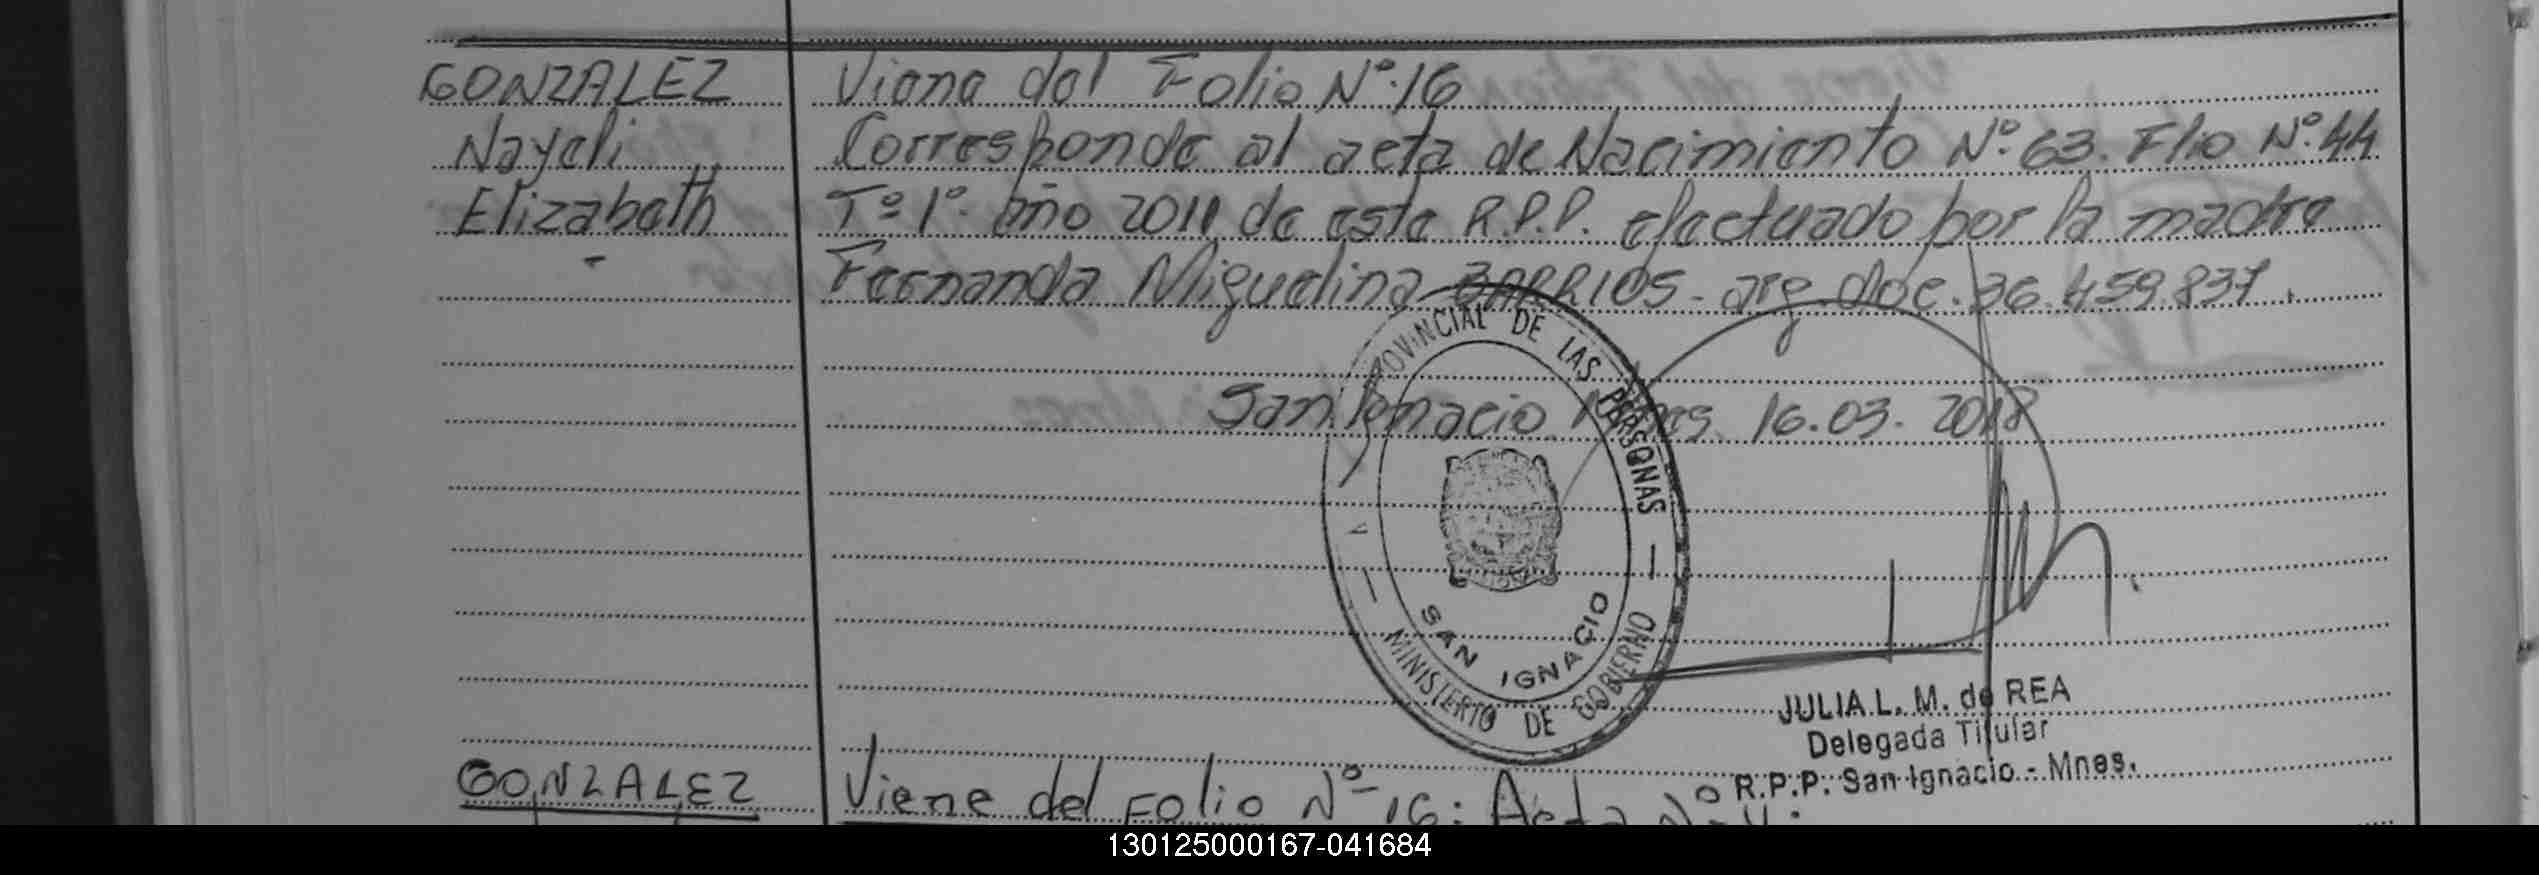 GONZALEZ Viene del Folio Nº.16
Nayeli Corresponde al acta de Nacimiento Nº.63. Flio Nº.44
Elizabeth Tº1º. año 2011 de este R.P.P. efectuado por la madre
Fernanda Miguelina BARRIOS - arg. doc. 36.459.837.
San Ignacio Mnes. 16.03.2018
PROVINCIAL DE LAS PERSONAS
MINISTERIO DE GOBIERNO
SAN IGNACIO
JULIA L. M. de REA
Delegada Titular
R.P.P. San Ignacio - Mnes.
GONZALEZ Viene del Folio Nº 16: Acta Nº
130125000167-041684